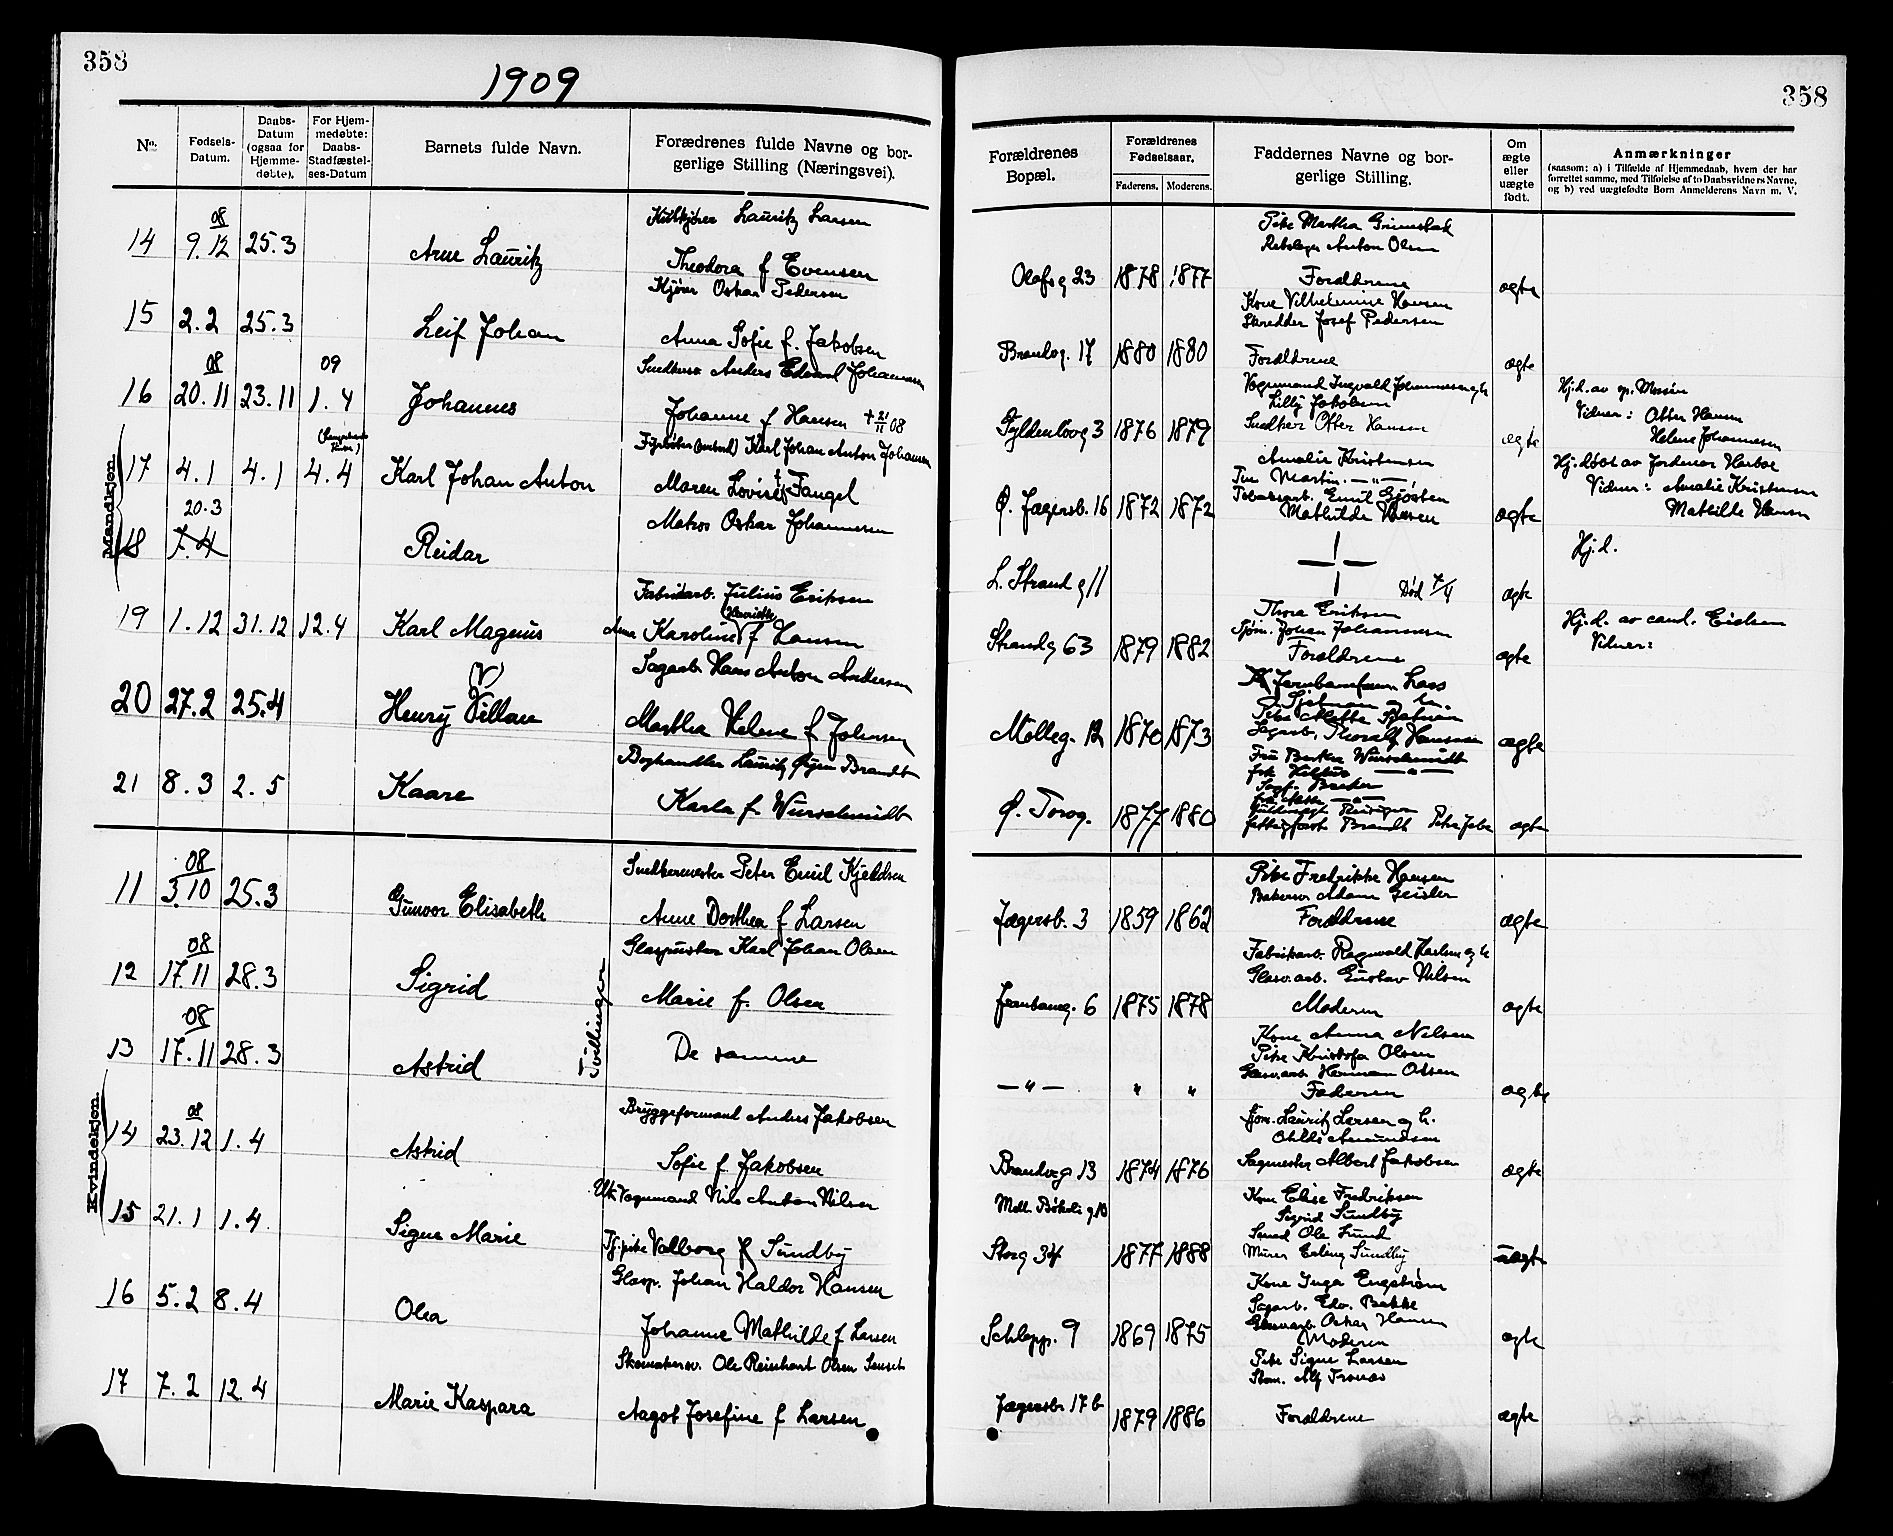 358
1909
No:
Fødsels-Datum.
Daabs-Datum (ogsaa for Hjemme-døbte).
For Hjem-medøbte: Daabs-Stadfæstel-ses-Datum
Barnets fulde Navn.
Forædrenes fulde Navne og bor-gerlige Stilling (Næringsvei).
Mandkjøn.
14 08 9.12 25.3 Arne Lauritz
Lauritz Larsen
Theodora f Evensen
15 2.2 25.3 Leif Johan
Kjører Oskar Pedersen
Anna Sofie f. Jakobsen
16 08 20.11 23.11 09 1.4 Johannes
Anders Edvard Johannesen
Johanne f Hansen + 21/11 08
17 4.1 4.1 4.4 Karl Johan Anton
Karl Johan Anton Johansen
Maren Lovise f Fangel
18 20.3 7.4 Reidar
Matros Oskar Johannessen
19 1.12 31.12 12.4 Karl Magnus
Fabrikarb. Julius Eriksen
Anna Karoline f Hansen
20 27.2 25.4 Henry Villan
V
Sagarb. Hans Anton Andersen
Martha Helene f Johnsen
21 8.3 2.5 Kaare
Boghandler Lauritz Brandt
Karla f Wurschmidt
Kvindekjøn.
11 08 3.10 25.3 Gunvor Elisabeth
Snedkermester Peter Emil Kjeldsen
Anne Dorthea f Larsen
12 08 17.11 28.3 Sigrid
Glaspuster Karl Johan Olsen
Marie f. Olsen
Tvillinger
13 08 17.11 28.3 Astrid
De samme
14 08 23.12 1.4 Astrid
Bryggeformand Anders Jakobsen
Sofie f Jakobsen
15 21.1 1.4 Signe Marie
Vognmand Nils Anton Nilsen
Tj.pike Valborg f Sundby
16 5.2 8.4 Olea
Glasp. Johan Haldor Hansen
Johanne Mathilde f Larsen
17 7.2 12.4 Marie Kaspara
Skomakersv. Ole Reinhart Olsen
Aagot Josefine f Larsen
358
Forældrenes Bopæl.
Forældrenes Fødselsaar.
Faderens. Moderens.
Faddernes Navne og bor-gerlige Stilling.
Om ægte eller uægte født.
Anmærkninger
(saasom: a) i Tilfælde af Hjemmedaab, hvem der har
forrettet samme, med Tilføielse af to Daabsvidners Navne,
og b) ved uægtefødte Børn Anmelderens Navn m. V.
Pike Martha
Anton Olsen
Olafsg 23 1878 1877 Forældrene ægte
Kone Vilhelmine Hansen
Skredder Josef Pedersen
Brandog. 17 1880 1880 Forældrene ægte
Vognmand Ingvald Johannessen
Lilly Jakobsen
Gyldenlovg 3 1876 1879 Snedker Otter Hansen ægte
Hj.d. av
Vidner: Otter Hansen
Helene Johannessen
Amalie Kristensen
Martin —"—
Tobaksarb. Emil
Ø. Jægersb. 16 1872 1872 Mathilde Hansen ægte
Hj.døbt av Jordmor Harboe
Vidner: Amalie Kristensen
Mathilde Hansen
L. Strandg 11 Død 7/4 ægte
Hj.d.
Thora Eriksen
Sjøm. Johan Johannessen
Strandg 63 1879 1882 Forældrene ægte
Hj.d. av cand. Eidsem
Vidner:
Lars
Mølleg. 12 1870 1873 Sagarb. Thoralf Hansen ægte
Wurschmidt
—"—
Ø. Torvg. 1877 1880 Brandt ægte
Pike Fredrikke Hansen
Adam Geisler
Jægersb. 3 1859 1862 Forældrene ægte
Fabrikarb. Ragnvald Karlsen og h
Glasv.arb. Gustav Nilsen
Jernbaneg. 6 1875 1878 Moderen ægte
Kone Anna Nilsen
Pike Kristofa Olsen
Glasv.arb Herman Olsen
—"— " " Faderen ægte
Sjøm. Lauritz Larsen og h.
Amundsen
Brandvg 13 1874 1876 Sagmester Albert Jakobsen ægte
Kone Elise Fredriksen
Sigrid Sundby
Ole Lund
Storg 34 1877 1888 Murer Erling Sundby uægte
Kone Inga Engstrøm
Sagarb. Edv. Bakke
Glasv.arb Oskar Hansen
Schlepp. 9 1869 1875 Moderen ægte
Pike Signe Larsen
Jægersb 17 b 1879 1886 Forældrene ægte